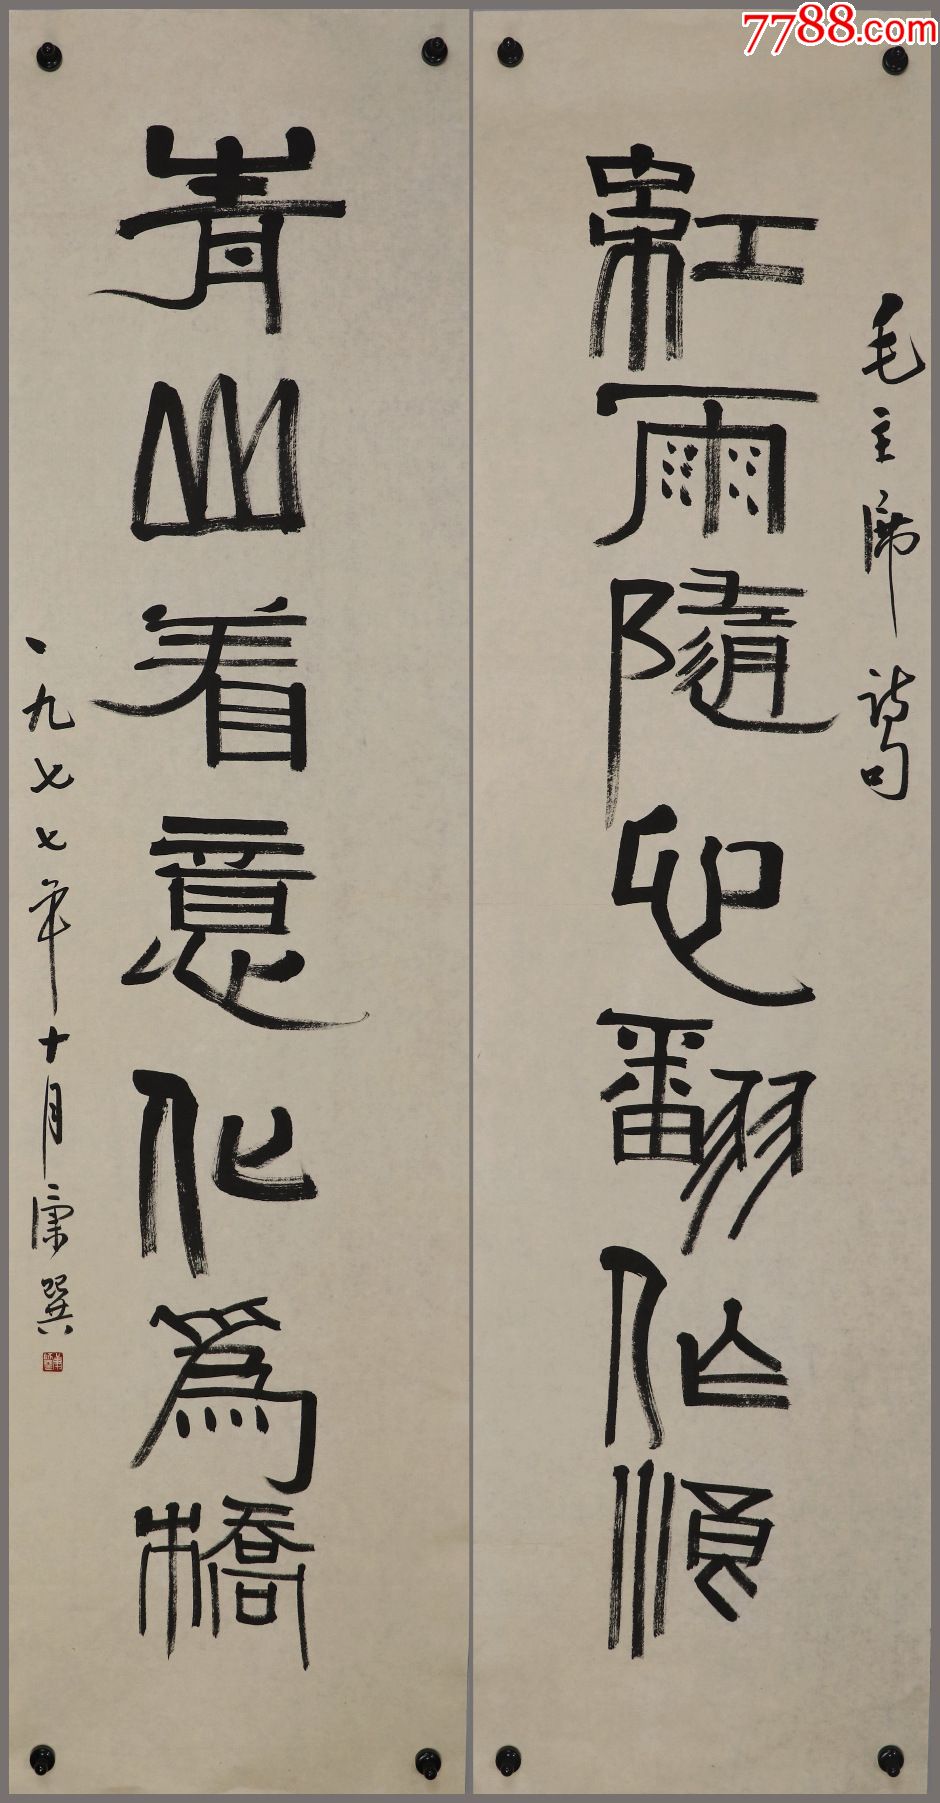 7788.com
毛主席诗句
紅雨隨心翻作浪
青山着意化爲橋
一九七七年十月康巽